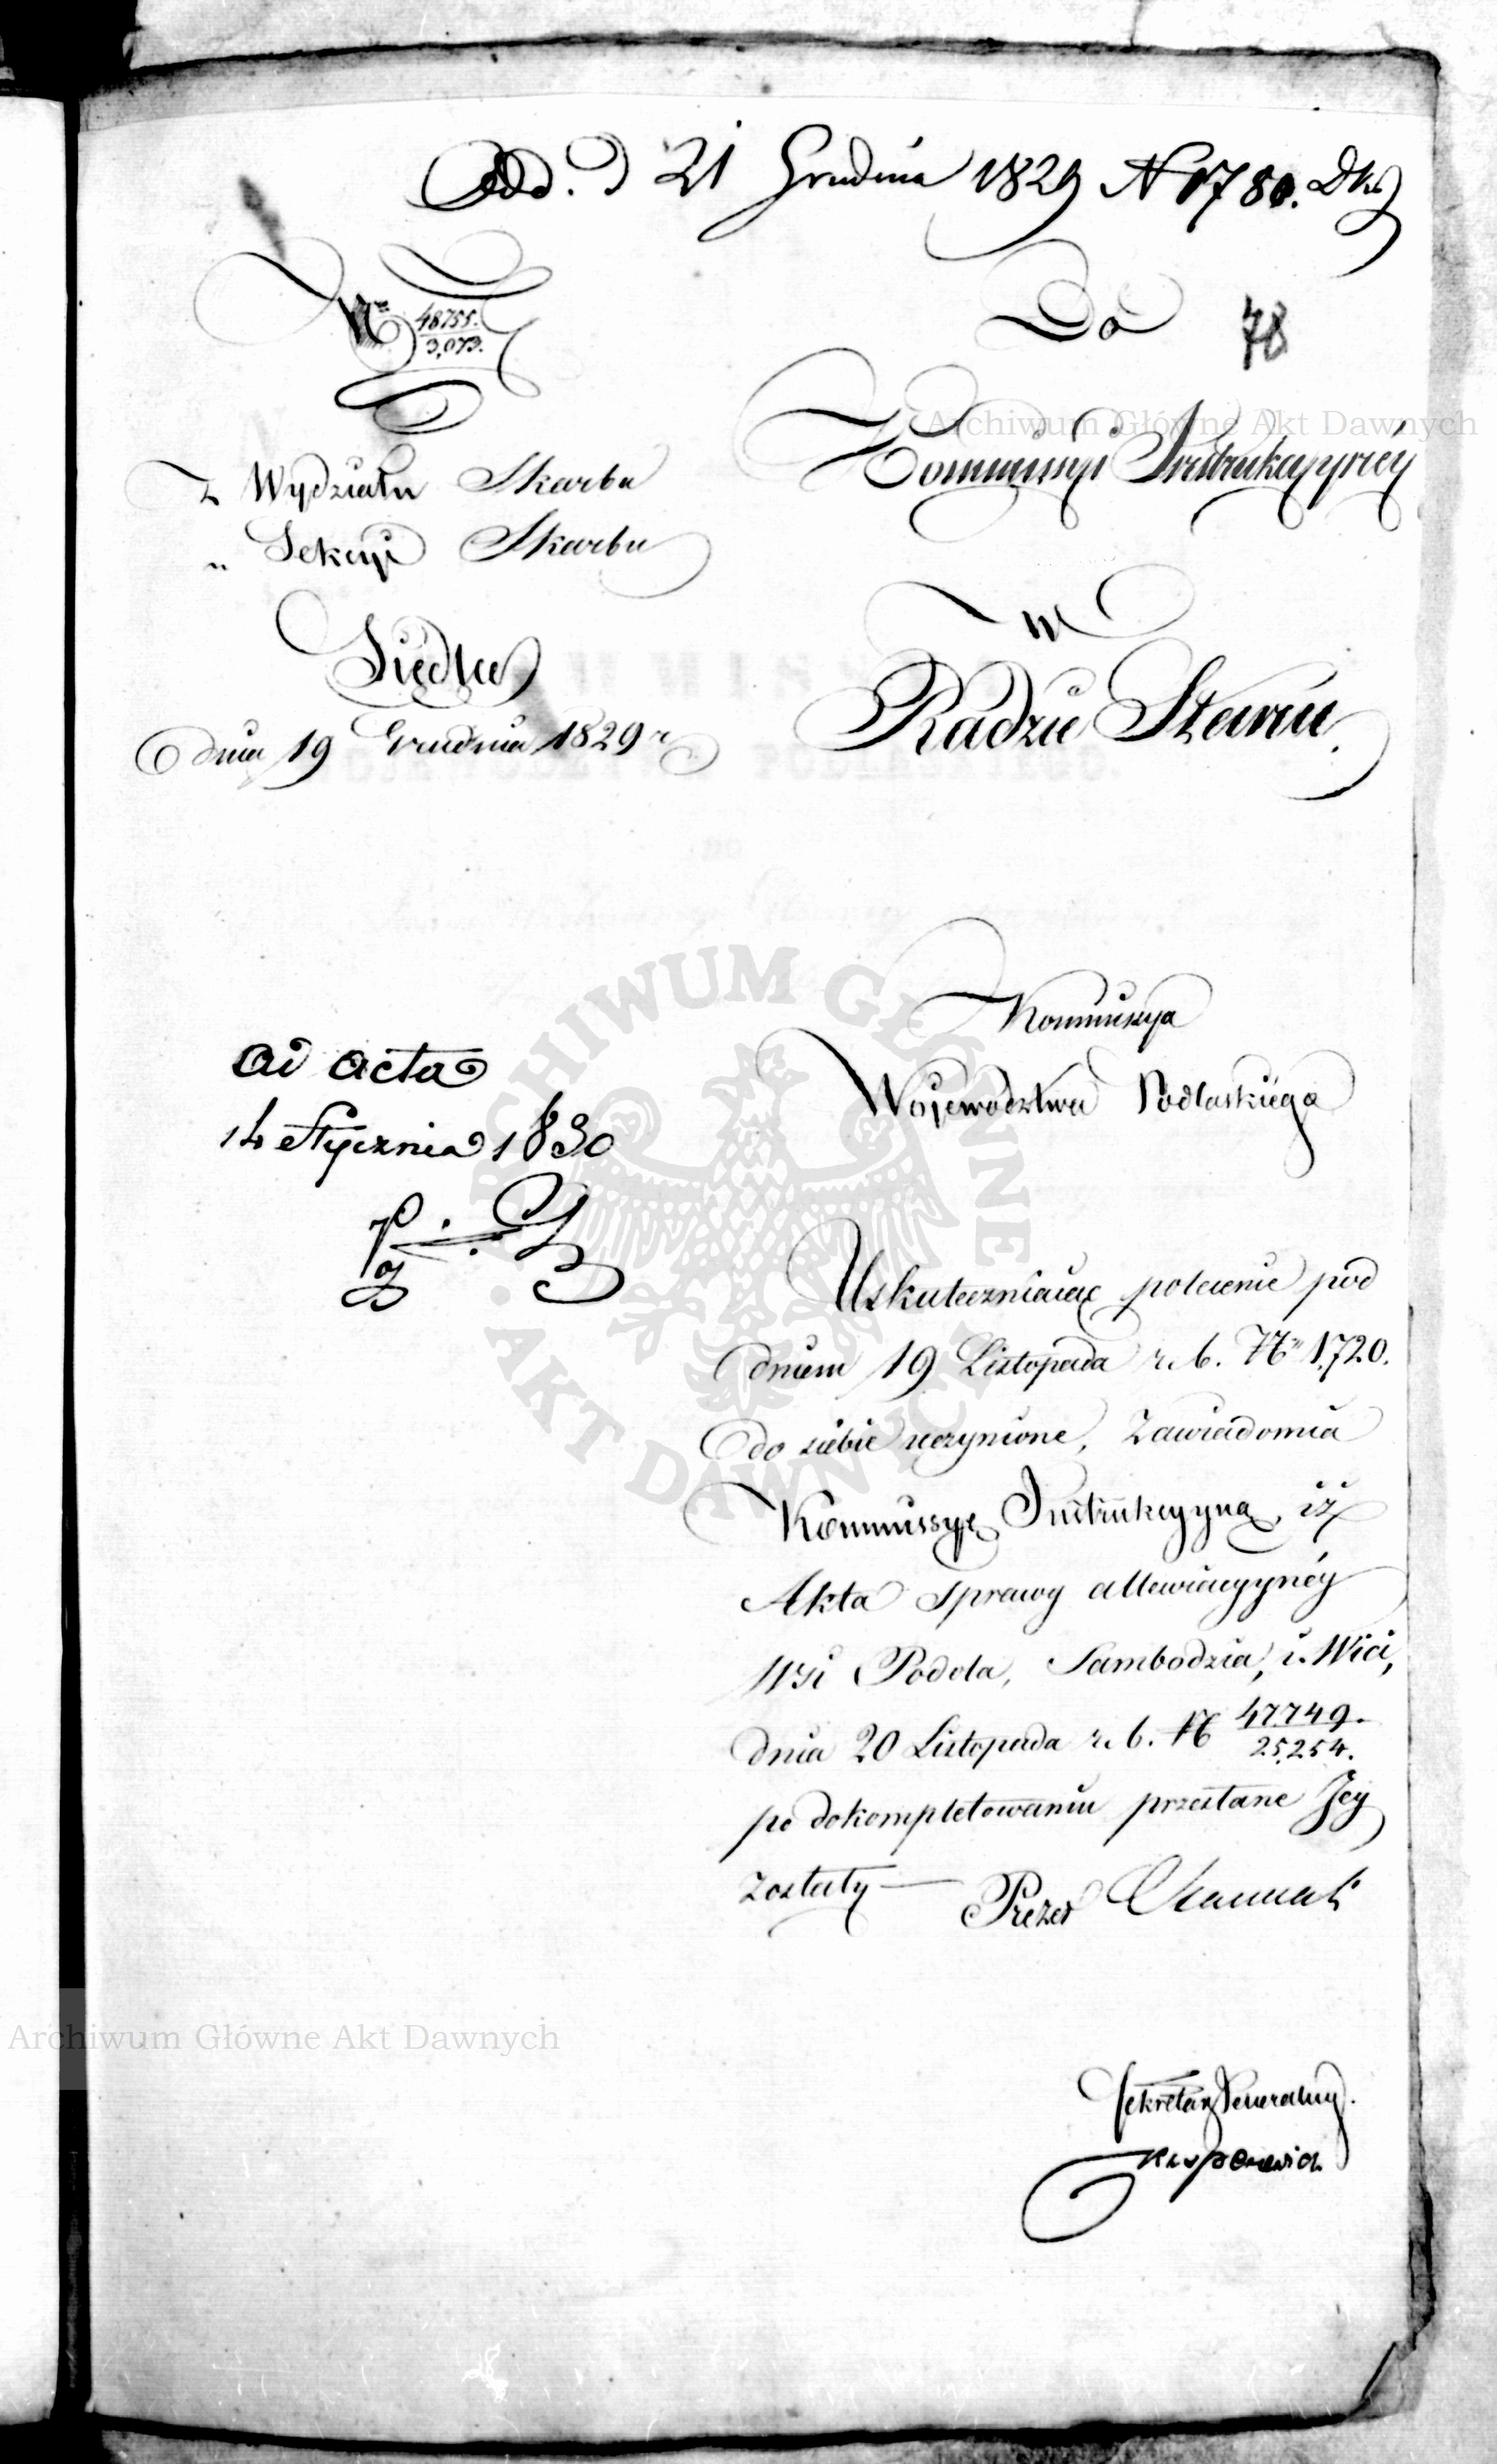 Odd. D 21 Grudnia 1829 N 1780. Dks
Nro 48755./3,073.
Do
78
Kommissyi Instrukcyynéy
Z Wydziału Skarbu
„ Sekcyi Skarbu
w
Siedlce
Radzie Stanu.
dnia 19 Grudnia 1829 r
Kommissya
Województwa Podlaskiego
ad acta
14 Stycznia 1830
Uskuteczniaiąc polecenie pod
dniem 19 Listopada r. b. No 1,720.
do siebie uczynione, Zawiadomia
Kommissyę Instrukcyyną, iż
Akta Sprawy allewiacyynéy
Wsi Podola, Sambodzia, i Wici,
dnia 20 Listopada r. b. N 47749./25,254.
po dokompletowaniu przesłane Jey
zostały — Prezes
Sekretarz Generalny.
Archiwum Główne Akt Dawnych
ARCHIWUM GŁÓWNE AKT DAWNYCH
Archiwum Główne Akt Dawnych